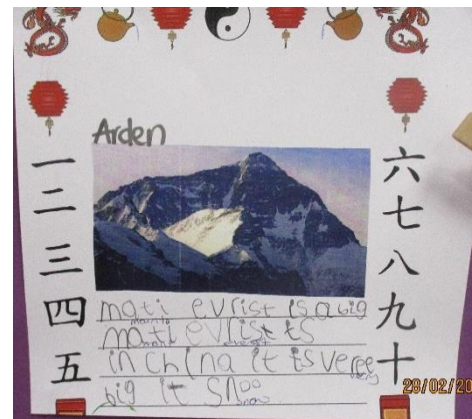 Arden
一
二
三
四
五
六
七
八
九
十
mati evrist is a big
mati evrist ts
in china it ts veree
big it snoo
snow
28/02/20